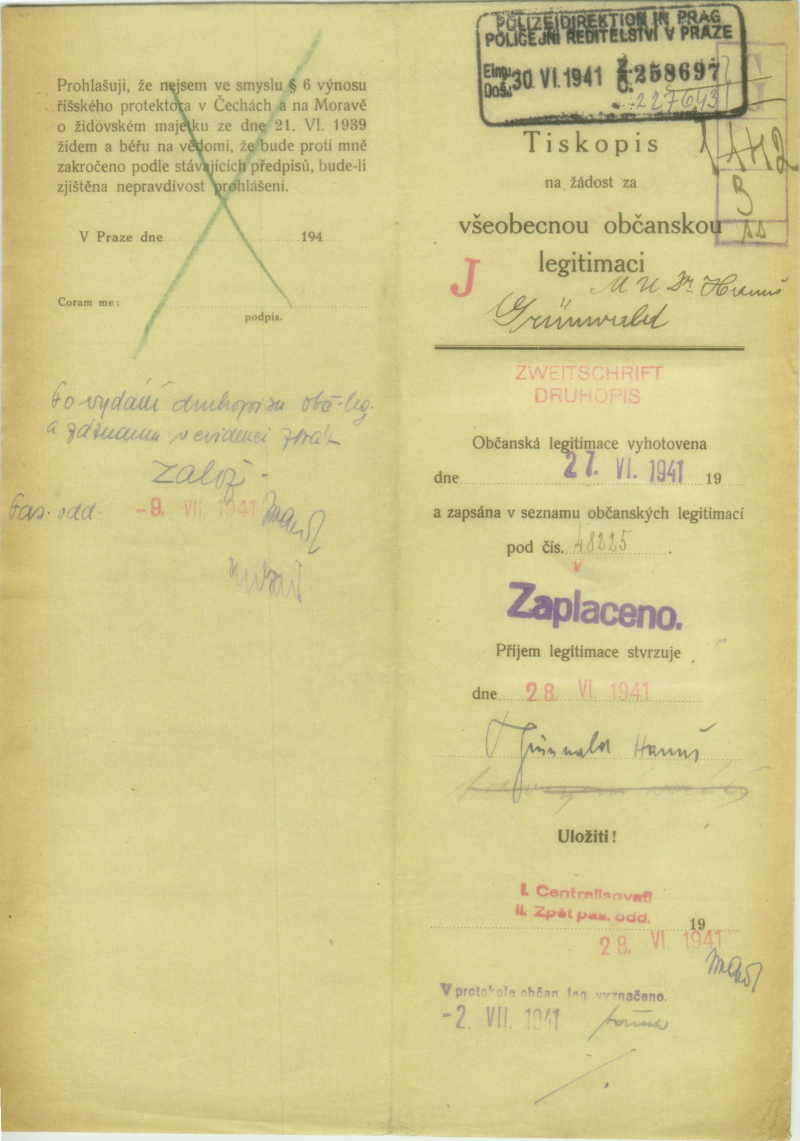 Prohlašuji, že nejsem ve smyslu § 6 výnosu
říšského protektora v Čechách a na Moravě
o židovském majetku ze dne 21. VI. 1939
židem a béřu na vědomí, že bude proti mně
zakročeno podle stávajících předpisů, bude-li
zjištěna nepravdivost prohlášení.
V Praze dne 194
Coram me:
podpis.
Po vydání druhopisu obč. leg.
a záznamu v evidenci ztrát
založ -
Pas. odd. -9. VII 1941
POLIZEIDIREKTION IN PRAG
POLICEJNÍ ŘEDITELSTVÍ V PRAZE
Eing.:
Doš.: 30 VI. 1941 Z. Č. 258697
227643
Tiskopis
na žádost za
všeobecnou občanskou
legitimaci
J MUDr. Hanuš
Grünwald
ZWEITSCHRIFT
DRUHOPIS
Občanská legitimace vyhotovena
dne 27. VI. 1941 19
a zapsána v seznamu občanských legitimací
pod čís. 48225.
Zaplaceno.
Příjem legitimace stvrzuje
dne 28. VI. 1941
Grünwald Hanuš
Uložiti!
I. Centralisovati
II. Zpět pas. odd.
19
28. VI. 1941
V protokole občan. leg. vyznačeno.
-2. VII. 1941